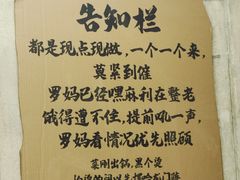 告知栏
都是现点现做，一个一个来，
莫紧到催
罗妈已经嘿麻利在整老
饿得遭不住，提前吼一声，
罗妈看情况优先照顾
菜刚出锅，黑个烫